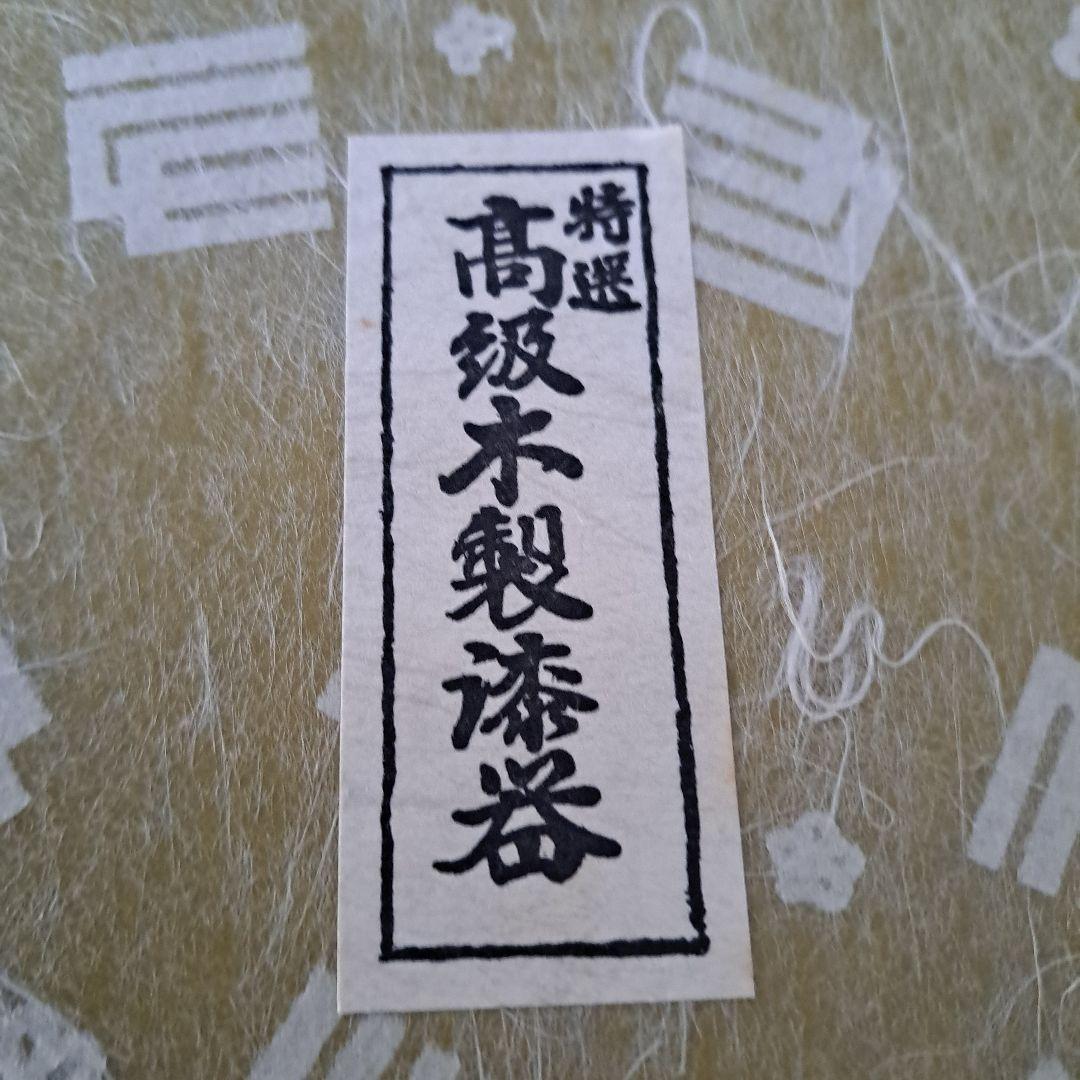 特選
髙級木製漆器